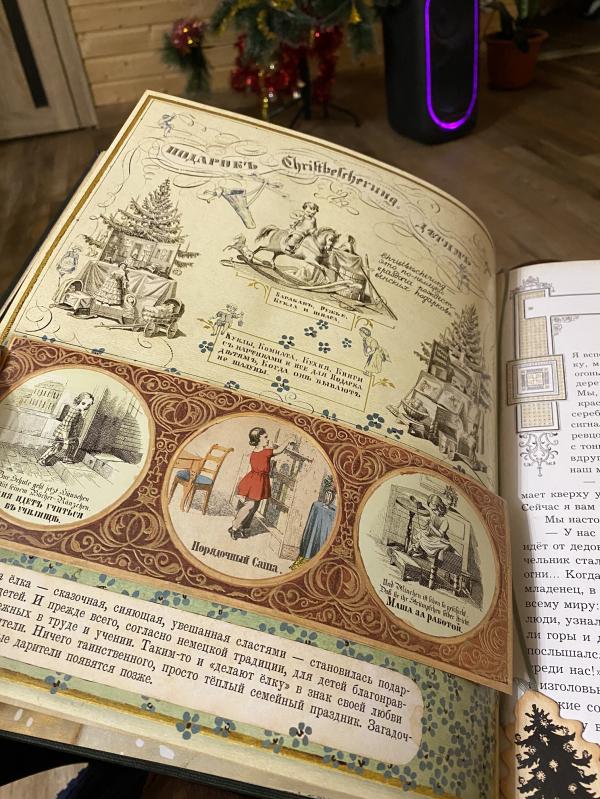 ПОДАРОКЪ Christbescherung. ДѢТЯМЪ
Christbescherung
это по-немецки
раздача рождест-
венских подарков
БАРАБАНЪ, РУЖЬЕ,
КУКЛА И ШПАГА.
КУКЛЫ, КОМНАТА, КУХНЯ, КНИГИ
СЪ КАРТИНКАМИ И ВСЕ ДЛЯ ПОДАРКА
ДѢТЯМЪ, КОГДА ОНИ БЫВАЮТЪ
НЕ ШАЛУНЫ.
Zur Schule geht jetzt Hänschen
Mit seinem Bücher-Ränzchen.
ИДЕТЪ УЧИТЬСЯ
ВЪ УЧИЛИЩѢ.
Порядочный Саша.
Und Mariechen ist schon so geschickt
Daß sie ihr Strümpfchen selber strickt
МАША ЗА РАБОТОЙ.
ёлка — сказочная, сияющая, увешанная сластями — становилась подар-
детей. И прежде всего, согласно немецкой традиции, для детей благонрав-
ежных в труде и учении. Таким-то и «делают ёлку» в знак своей любви
тели. Ничего таинственного, просто тёплый семейный праздник. Загадоч-
ые дарители появятся позже.
Я вспо
ку, м
огонь
дере
Мы,
крас
сереб
сигна
ревцо
с тон
вдруг
наш м
—
мает кверху у
Сейчас я вам
Мы насто
— У нас
идёт от дедов
чельник стал
огни... Когда
младенец, в
всему миру:
люди, узнал
ли горы и д
послышался
среди нас!»
с изголовь
кие со